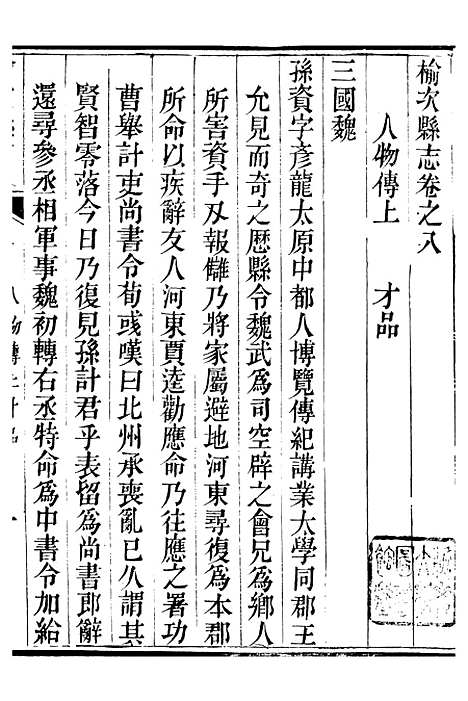 榆次縣志卷之八
人物傳上　才品
三國魏
孫資字彥龍太原中都人博覽傳紀講業太學同郡王
允見而奇之歷縣令魏武爲司空辟之會兄爲鄉人
所害資手刄報讎乃將家屬避地河東尋復爲本郡
所命以疾辭友人河東賈逵勸應命乃往應之署功
曹舉計吏尚書令荀彧嘆曰北州承喪亂已久謂其
賢智零落今日乃復見孫計君乎表留爲尚書郎辭
還尋參丞相軍事魏初轉右丞特命爲中書令加給
人物傳上才品